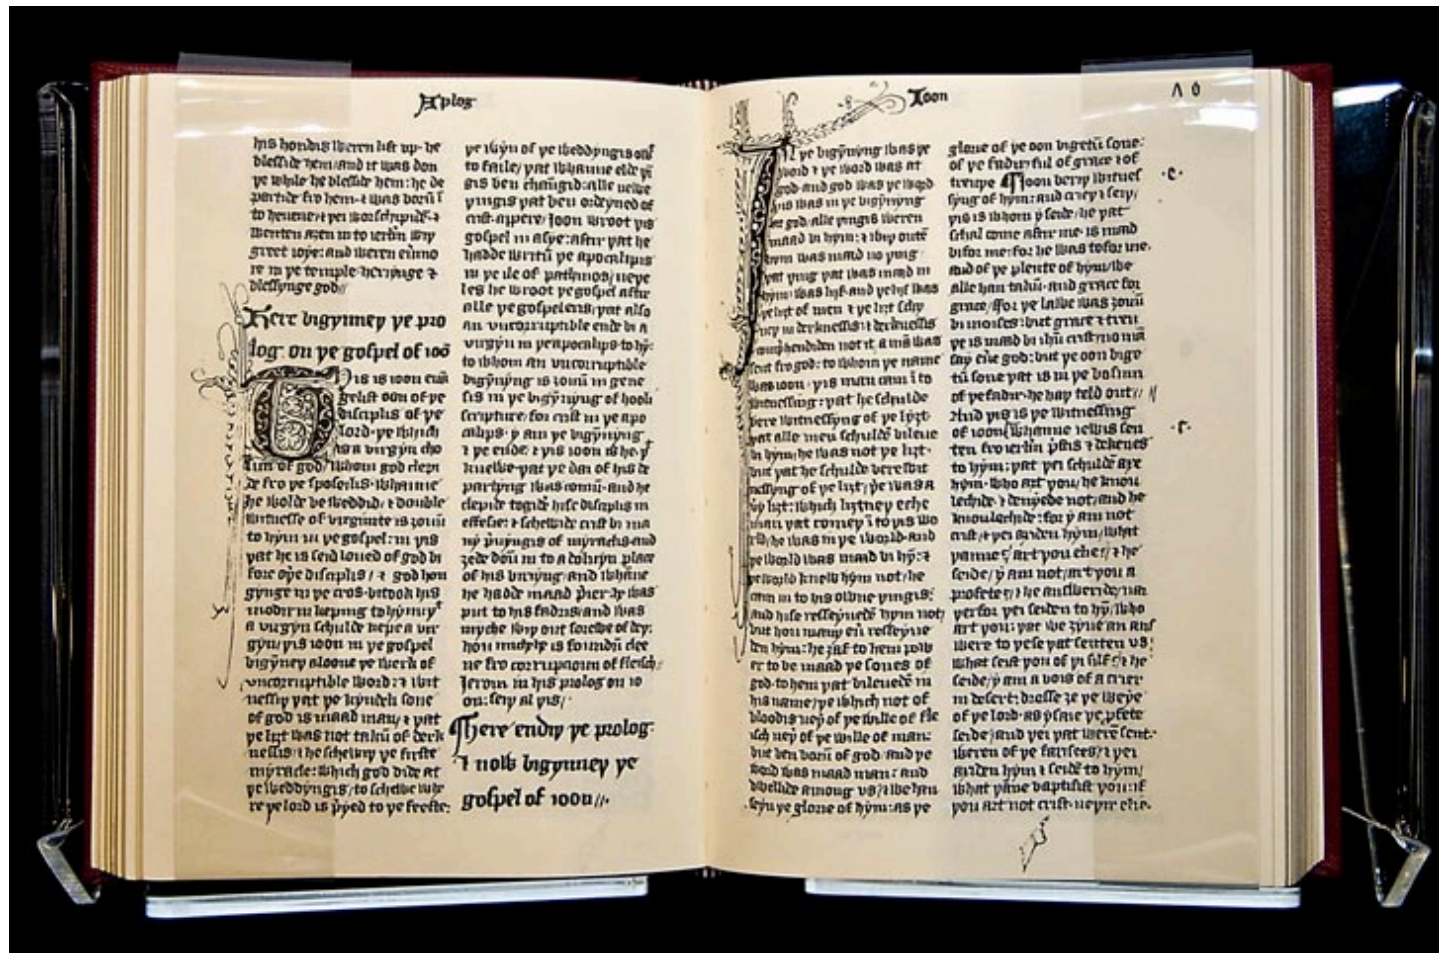 A plog
his hondis weren lift up· he
blesside hem/and it was don
þe while he blesside hem: he de
partide fro hem· ⁊ was born ī
to heuene· ⁊ þei worschepide· ⁊
wenten aȝen in to ierlm wiþ
greet ioȝe: and weren eumo
re in þe temple· heriynge ⁊
blessynge god//
Here bigynneþ þe pro
log on þe gospel of ioō
Þis is ioon euā
gelist oon of þe
disciplis of þe
lord· þe which
is a virgyn cho
sun of god/ whom god clepi
de fro þe sposeilis· whanne
he wolde be weddid/ ⁊ double
witnesse of virginite is ȝouū
to hym in þe gospel: in þis
þat he is seid loued of god bi
fore oþe disciplis/ ⁊ god hon
gynge in þe cros· bitook his
modir in keping to hym· þt
a virgyn schulde kepe a vir
gyn/ þis ioon in þe gospel
bigynneþ aloone þe werk of
uncorruptible word: ⁊ wit
nessiþ þat þe kyndeli sone
of god is maad man/ ⁊ þat
þe liȝt was not takū of derk
nessis· ⁊ he scheweþ þe firste
myracle: which god dide at
þe weddyngis/ to schewe whe
re þe lord is p̄yed to þe feeste:
þe wyn of þe weddyngis oweþ
to faile/ þat whanne elde þī
gis ben chaūgid: alle newe
þingis þat ben ordeyned of
crist· apere/ Joon wroot þis
gospel in asye: aftir þat he
hadde writū þe apocalips
in þe ile of pathmos/ neþe
les he wroot þe gospel aftir
alle þe gospeleris/ þat also
an uncorruptible ende bi a
virgyn in þe apocalips· to hȳ:
to whom an uncorruptible
bigynyng is ȝouū in gene
sis in þe bigynyng of hooli
scripture/ for crist in þe apo
calips· y am þe bigynyng
⁊ þe ende/ ⁊ þis ioon is he· þt
knewe þat þe dai of his de
partyng was comū· and he
clepide togidr̄ hise disciplis in
effesie: ⁊ schewide crist bi ma
ny p̄uyngis of myraclis· and
ȝede doū in to a doluyn place
of his biriyng· and whāne
he hadde maad p̄ier· he was
put to his fadris· and was
myche wiþ out sorewe of deþ:
hou myche he is foundū clee
ne fro corrupcioun of fleisch:
Jerom in his prolog on io
on: seiþ al þis/
¶Here endiþ þe prolog·
⁊ now bigynneþ þe
gospel of ioon//·
Ioon
In þe bigynyng was þe
word ⁊ þe word was at
god· and god was þe word
þis was in þe bigynyng
at god/ alle þingis weren
maad bi hym: ⁊ wiþ outē
hym was maad no þing·
þat þing þat was maad in
hym· was lyf· and þe lyf was
þe liȝt of men ⁊ þe liȝt schy
neþ in derknessis: ⁊ derknessis
comp̄hendiden not it· a mā was
sent fro god: to whom þe name
was ioon· þis man cam ī to
witnessing: þat he schulde
bere witnessyng of þe lyȝt·
þat alle men schuldē bileue
bi hym/ he was not þe liȝt·
but þat he schulde bere wit
nessyng of þe liȝt/ þ̄e was a
v̄y liȝt: which liȝtneþ eche
man þat comeþ ī to þis wo
rld/ he was in þe world· and
þe world was maad bi hȳ: ⁊
þe world knew hym not/ he
cam in to his owne þingis:
and hise resseyuedē hym not/
but hou many eū resseyue
den hym: he ȝaf to hem pow
er to be maad þe sones of
god· to hem þat bileuedē in
his name/ þe which not of
bloodis neþ̄ of þe wille of fle
isch neþ̄ of þe wille of man:
but ben borū of god/ and þe
word was maad man: and
dwellide among us/ ⁊ we han
seyn þe glorie of hym: as þe
glorie of þe oon bigetū sone:
of þe fadir/ ful of grace ⁊ of
treuþe ¶Joon beriþ witnes
syng of hym: and crieþ ⁊ seiþ/
þis is whom y seide/ he þat
schal come aftir me· is maad
bifor me: for he was tofor me·
and of þe plente of hym/ we
alle han takū· and grace for
grace/ ffor þe lawe was ȝouū
bi moises: but grace ⁊ treu
þe is maad bi ihū crist/ no mā
say eūe god: but þe oon bige
tū sone þat is in þe bosum
of þe fadir· he haþ teld out//
And þis is þe witnessing
of ioon/ whanne iewis sen
ten fro ierlm p̄stis ⁊ dekenes
to hym: þat þei schuldē axe
hym· who art þou/ he know
lechide· ⁊ denyede not/ and he
knoulechide· for y am not
crist/ ⁊ þei axiden hym/ what
þanne/ art þou elie/ ⁊ he
seide/ y am not/ art þou a
profete/ ⁊ he answeride/ nai
þerfor þei seiden to hȳ/ who
art þou: þat we ȝyue an ans
were to þese þat senten us:
what seist þou of þi silf/ ⁊ he
seide/ y am a vois of a crier
in desert: dresse ȝe þe weye
of þe lord· as ysaie þe p̄fete
seide/ and þei þat werē sent·
weren of þe farisees/ ⁊ þei
axiden hym ⁊ seidē to hym/
what þāne baptisist þou: if
þou art not crist· neþir elie·
·c·